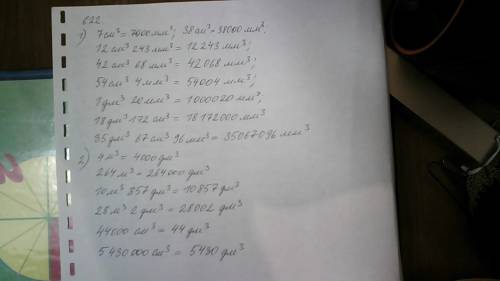 622.
1) 7 см³ = 7000 мм³; 38 см³ = 38000 мм³.
12 см³ 243 мм³ = 12243 мм³;
42 см³ 68 мм³ = 42068 мм³;
54 см³ 4 мм³ = 54004 мм³;
1 дм³ 20 мм³ = 1000020 мм³;
18 дм³ 172 см³ = 18172000 мм³
35 дм³ 67 см³ 96 мм³ = 35067096 мм³
2) 4 м³ = 4000 дм³
264 м³ = 264000 дм³
10 м³ 857 дм³ = 10857 дм³
28 м³ 2 дм³ = 28002 дм³
44000 см³ = 44 дм³
5430000 см³ = 5430 дм³